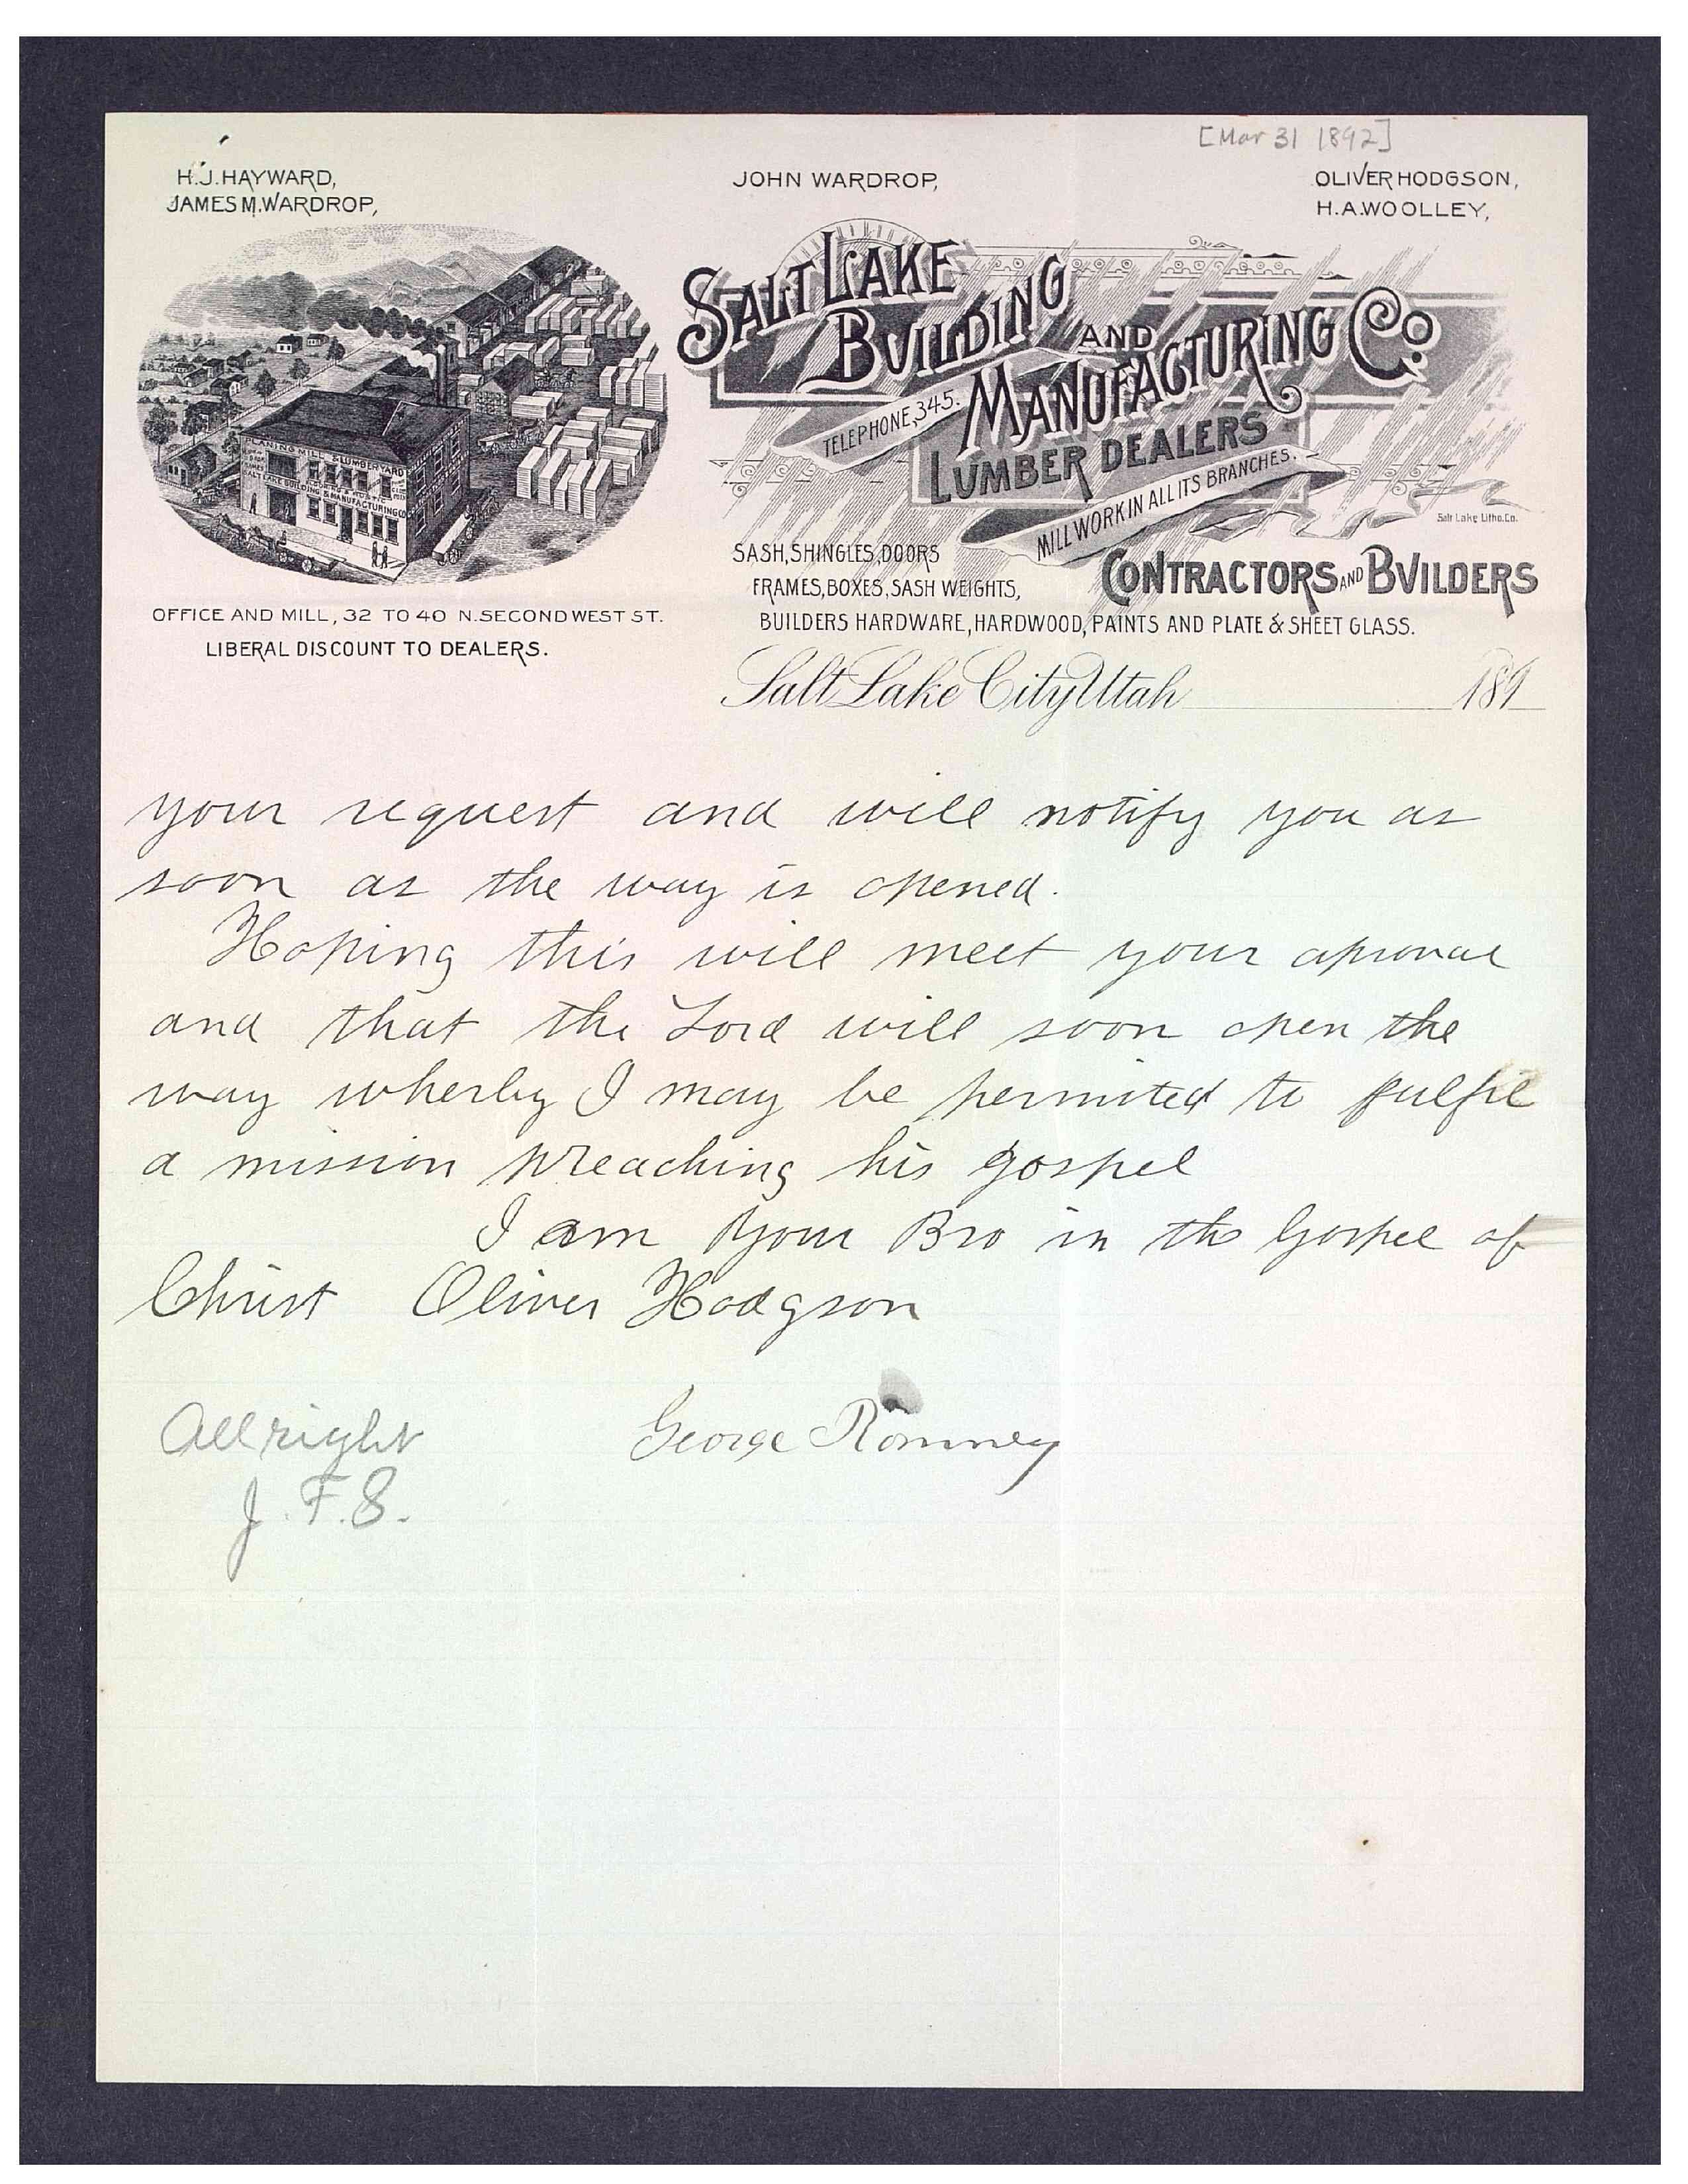 [Mar 31 1892]
H.J. HAYWARD,
JAMES M. WARDROP,
JOHN WARDROP,
OLIVER HODGSON,
H.A. WOOLLEY,
SALT LAKE
BUILDING AND
MANUFACTURING Co.
TELEPHONE, 345.
LUMBER DEALERS
MILL WORK IN ALL ITS BRANCHES.
Salt Lake Litho. Co.
PLANING MILL & LUMBER YARD
SALT LAKE BUILDING & MANUFACTURING CO
SASH, SHINGLES, DOORS
FRAMES, BOXES, SASH WEIGHTS,
CONTRACTORS AND BUILDERS
BUILDERS HARDWARE, HARDWOOD, PAINTS AND PLATE & SHEET GLASS.
OFFICE AND MILL, 32 TO 40 N. SECOND WEST ST.
LIBERAL DISCOUNT TO DEALERS.
Salt Lake City Utah 189
your request and will notify you as
soon as the way is opened.
Hoping this will meet your aproval
and that the Lord will soon open the
way wherby I may be permited to fulfil
a mission preaching his gospel
I am your Bro in the Gospel of
Christ Oliver Hodgson
All right George Romney
J. F. S.